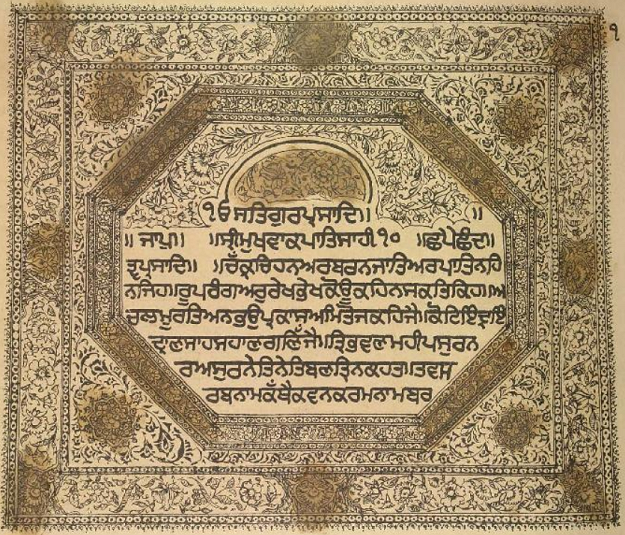 ੧
੧ਓ ਸਤਿਗੁਰਪ੍ਰਸਾਦਿ॥ ॥
॥ ਜਾਪੁ॥ ॥ਸ੍ਰੀਮੁਖਵਾਕਪਾਤਿਸਾਹੀ ੧੦ ॥ਛਪੈਛੰਦ॥
ਤ੍ਵਪ੍ਰਸਾਦਿ॥ ॥ਚੱਕ੍ਰਚਿਹਨਅਰਬਰਨਜਾਤਿਅਰਪਾਤਿਨਹਿ
ਨਜਿਹ॥ਰੂਪਰੰਗਅਰੁਰੇਖਭੇਖਕੋਊਕਹਿਨਸਕਤਿਕਿਹ॥ਅ
ਚਲਮੂਰਤਿਅਨਭਉਪ੍ਰਕਾਸਅਮਿਤੋਜਕਹਿਜੈ॥ਕੋਟਿਇੰਦ੍ਰਇੰ
ਦ੍ਰਾਣਸਾਹਸਾਹਾਣਗਣਿੱਜੈ॥ਤ੍ਰਿਭਵਣਮਹੀਪਸੁਰਨ
ਰਅਸੁਰਨੇਤਿਨੇਤਿਬਣਤ੍ਰਿਨਕਹਤ॥ਤਵਸ
ਰਬਨਾਮਕੱਥੈਕਵਨਕਰਮਨਾਮਬਰ